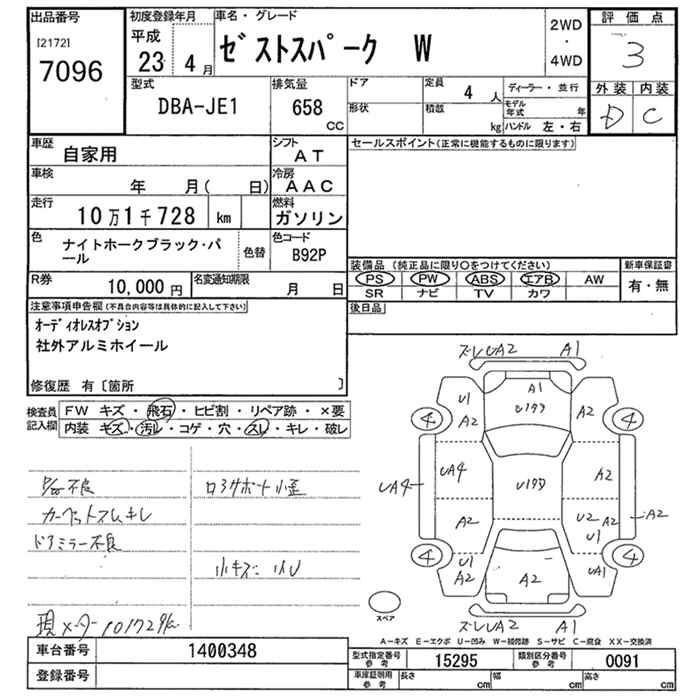 出品番号
[2172]
7096
初度登録年月
平成
23 4月
車名・グレード
ｾﾞｽﾄスパーク W
2WD
・
4WD
評価点
3
外装 内装
D C
型式
DBA-JE1
排気量
658
CC
ドア
形状
定員
4 人
積載
kg
ディーラー・並行
モデル年式 年
ハンドル 左・右
車歴
自家用
シフト
AT
セールスポイント(正常に機能するものに限ります)
車検
年 月( 日)
冷房
AAC
走行
10万1千728 km
燃料
ガソリン
色
ナイトホークブラック・パール
色替
色コード
B92P
装備品 (純正品に限り○をつけてください)
PS PW ABS エアB AW
SR ナビ TV カワ
新車保証書
有・無
R券
10,000 円
名変通知期限
月 日
後日品
注意事項申告欄(不具合内容等は具体的に記入して下さい)
ｵｰﾃﾞｨｵﾚｽｵﾌﾟｼｮﾝ
社外アルミホイール
修復歴 有〔箇所 〕
検査員
記入欄
FW キズ・飛石・ヒビ割・リペア跡・×要
内装 キズ・汚レ・コゲ・穴・スレ・キレ・破レ
不良
カーペットスレ キレ
ドアミラー不良
現メーター101729㎞
コアサポート小歪
小キズ 小U
ズレUA2 A1
A1
U1 A2
Uｱﾀﾀ
A2
4
4
UA4
UA4
Uｱﾀﾀ
A2
A2
U2 A2
U1
A2
4
4
U1
A2
A2
UA1
スペア
ズレUA2 A1
A－キズ E－エクボ U－凹み W－補修跡 S－サビ C－腐食 XX－交換済
車台番号
1400348
登録番号
型式指定番号
参考
15295
類別区分番号
参考
0091
車庫証明用
参考
長さ cm
幅 cm
高さ cm